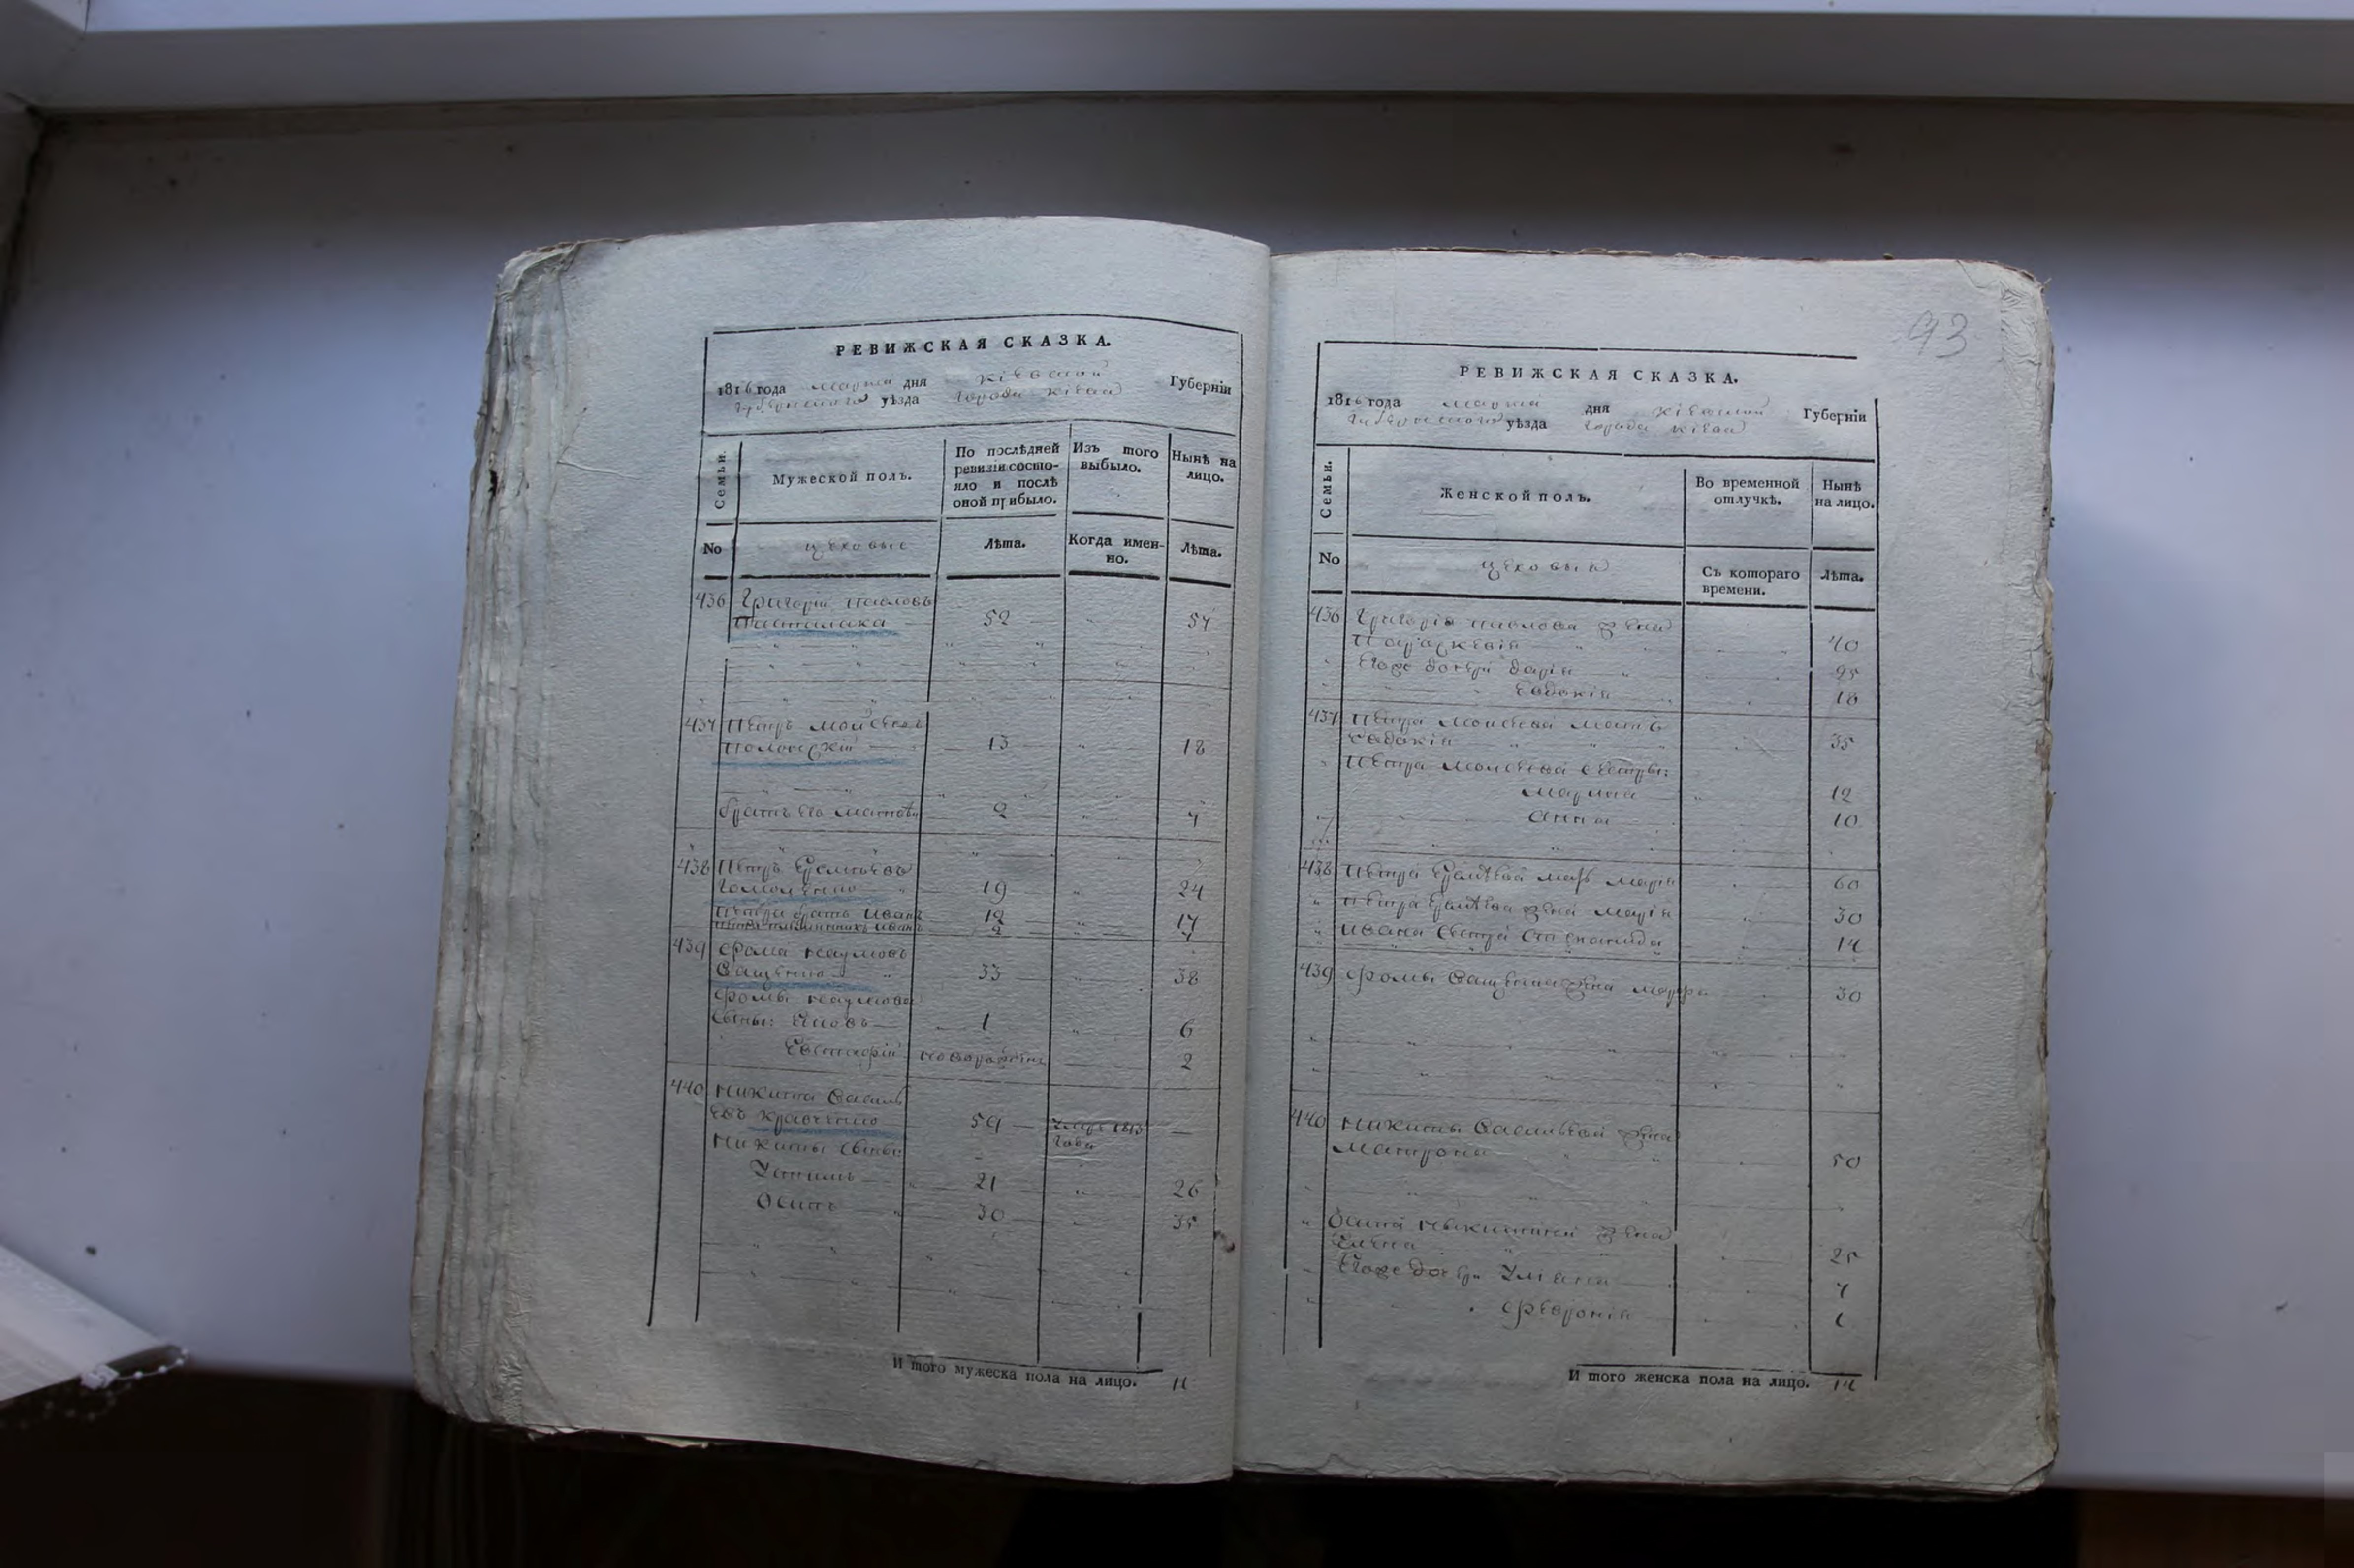 РЕВИЖСКАЯ СКАЗКА.
1816 года марта дня Кіевской Губерніи
Губернского уѣзда города Кіева
Семьи.
Мужеской полъ.
По послѣдней ревизіи состояло и послѣ оной прибыло.
Изъ того выбыло.
Нынѣ на лицо.
No
цеховые
Лѣта.
Когда именно.
Лѣта.
436 Григорій Павловъ
52 57
437 Петръ Мойсеевъ
13 18
братъ его Матвѣй 2 7
438 Петръ
Гомоленко 19 24
Петра братъ Иванъ 12 17
Петра племянникъ Иванъ 2 7
439 Фома Наумовъ
Ващенко 33 38
Фомы Наумова
сыны: Яковъ 1 6
Евстафій новорожденъ 2
440 Никита Василь
евъ Кравченко 59 умре 1813 —
года
Никиты сыны:
21 26
Осипъ 30 35
И того мужеска пола на лицо. 11
93
РЕВИЖСКАЯ СКАЗКА.
1816 года марта дня Кіевской Губерніи
Губернского уѣзда города Кіева
Семьи.
Женской полъ.
Во временной отлучкѣ.
Нынѣ на лицо.
No
цеховыя
Съ котораго времени.
Лѣта.
436 Григорія Павлова жена
Параскевія 40
Егоже дочери Дарія 25
Евдокія 18
437 Петра Мойсеева мать
Евдокія 35
Петра Мойсеева сестры:
Марина 12
Анна 10
438 Петра мать Марія 60
Петра жена Марія 30
Ивана сестра Степанида 14
439 Фомы Ващенка жена Марфа 30
440 Никиты Васильева жена
Матрона 50
Осипа Никитина жена
Елена 25
Егоже дочери Уліяна 7
Февронія
И того женска пола на лицо. 14